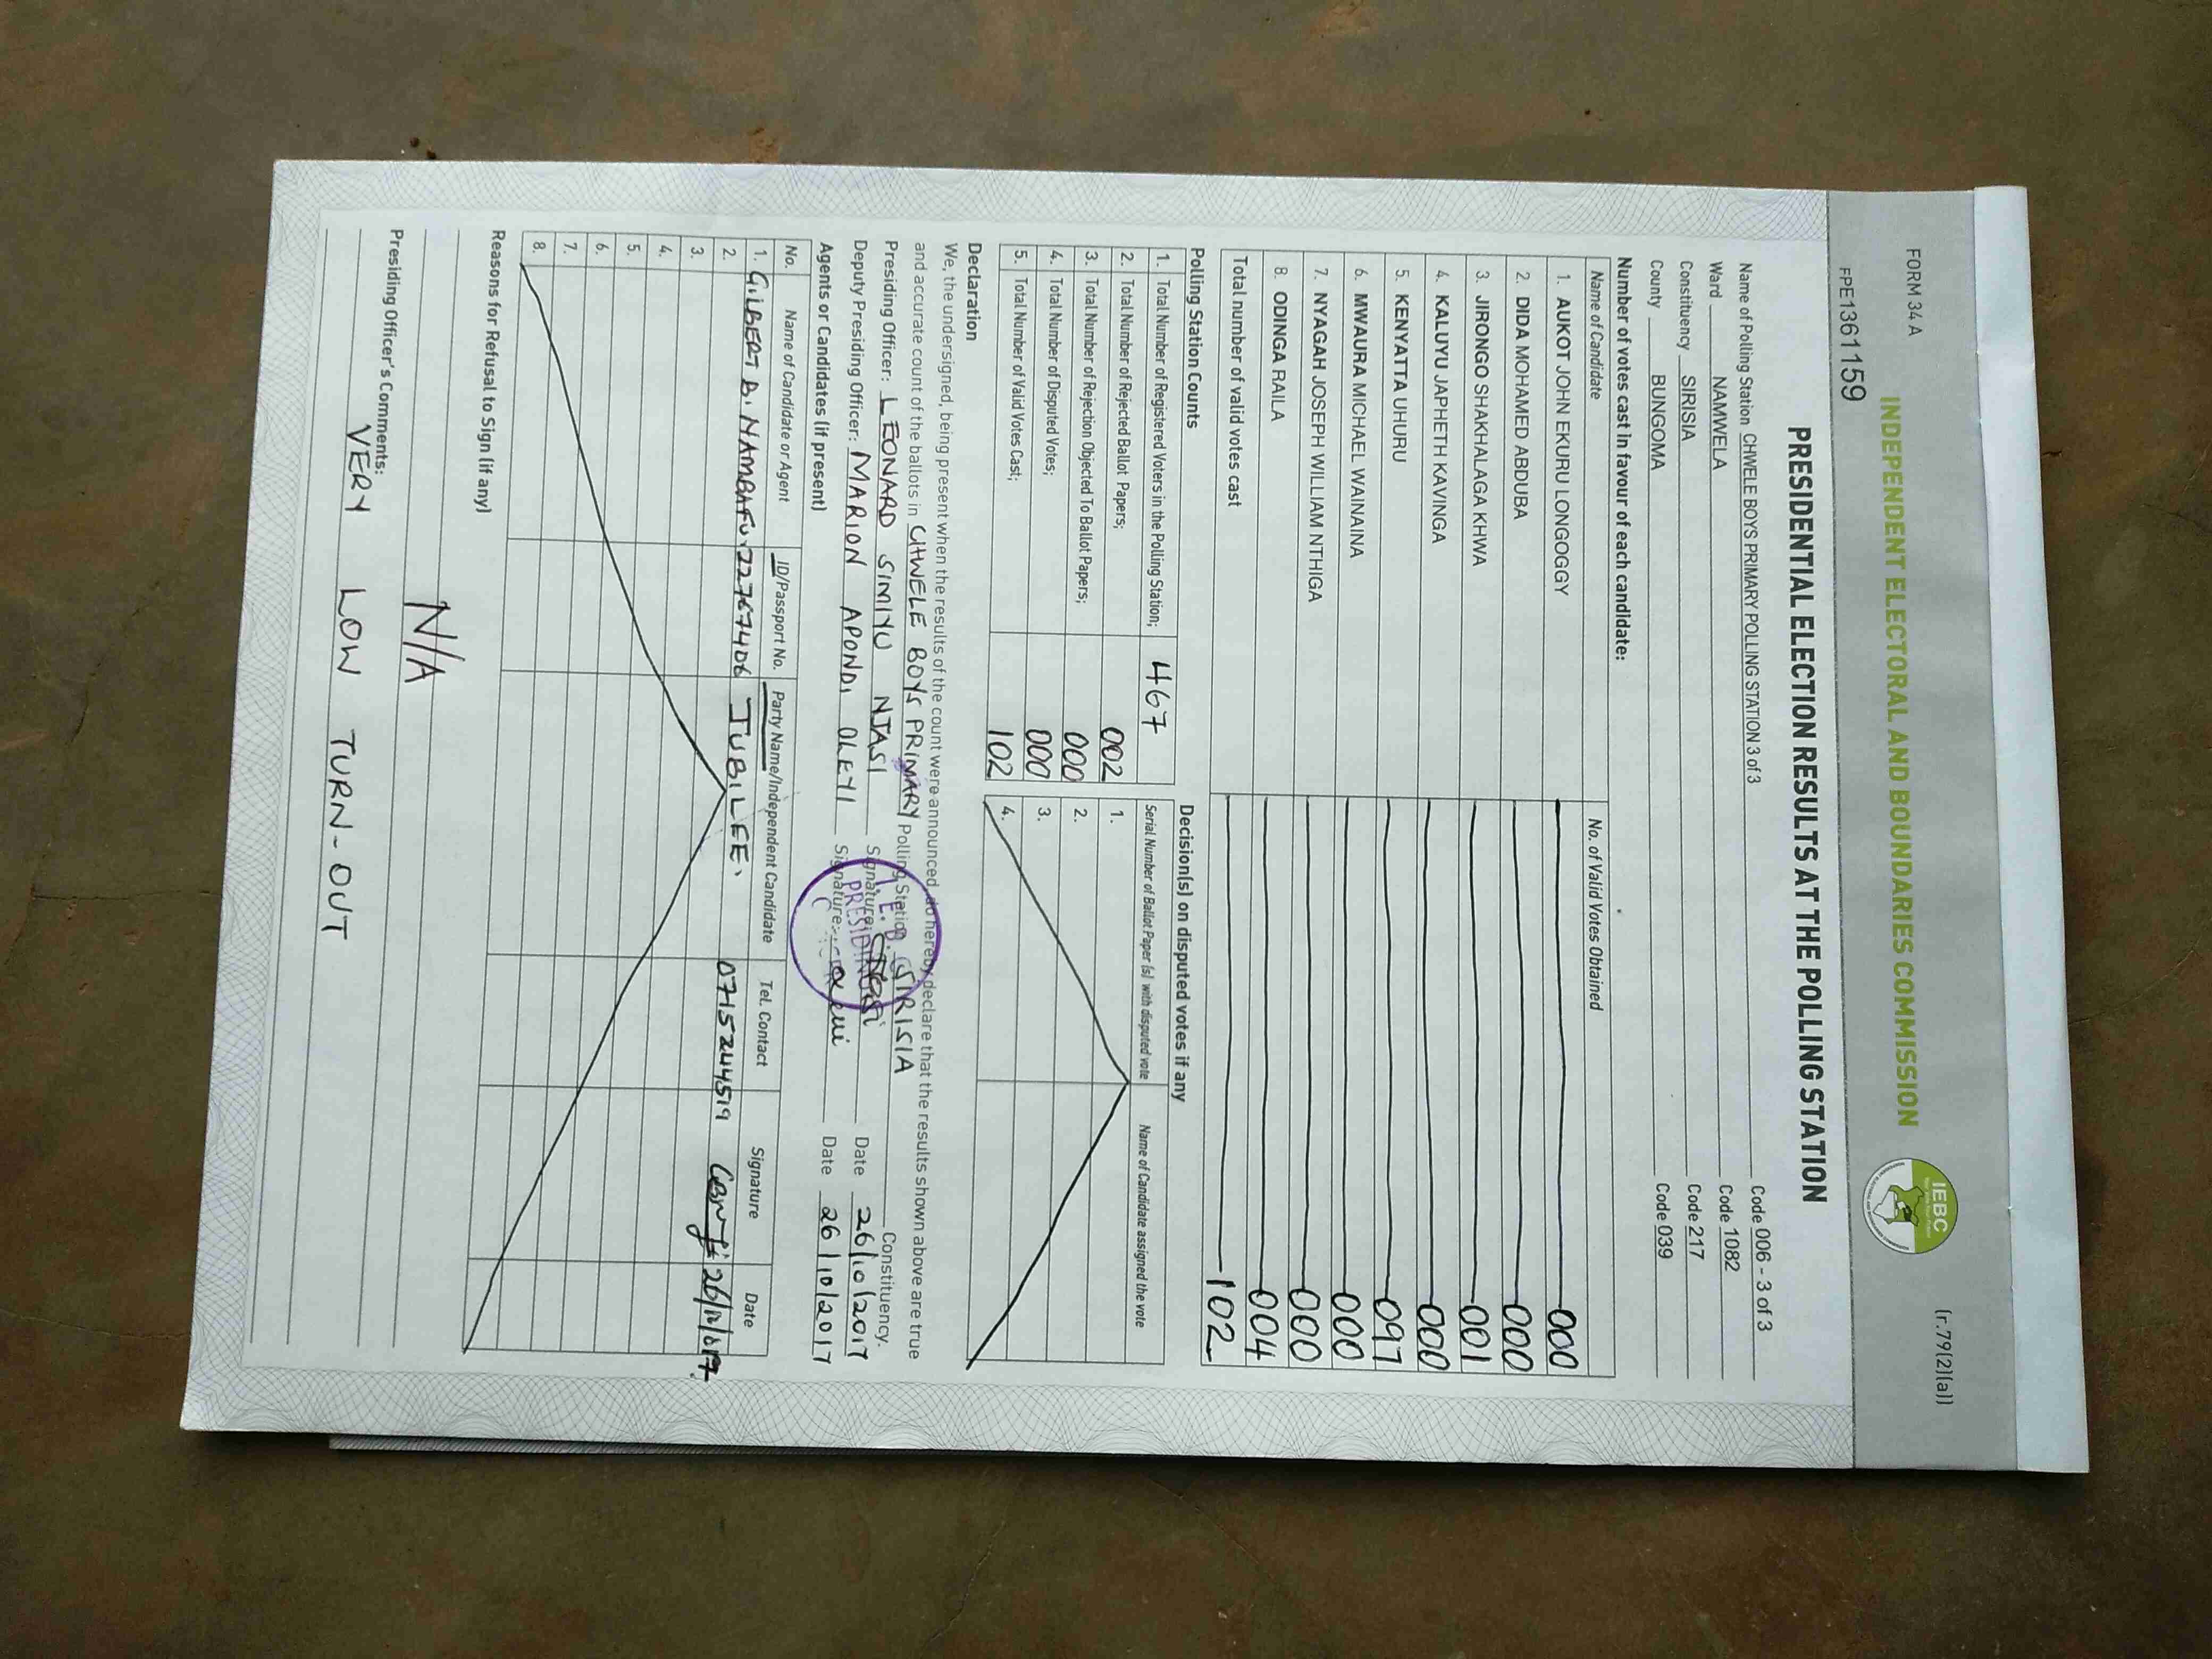 FORM 34 A
(r.79(2)(a))
INDEPENDENT ELECTORAL AND BOUNDARIES COMMISSION
IEBC
FPE1361159
PRESIDENTIAL ELECTION RESULTS AT THE POLLING STATION
Name of Polling Station CHWELE BOYS PRIMARY POLLING STATION 3 of 3 Code 006 - 3 of 3
Ward NAMWELA Code 1082
Constituency SIRISIA Code 217
County BUNGOMA Code 039
Number of votes cast in favour of each candidate:
Name of Candidate No. of Valid Votes Obtained
1. AUKOT JOHN EKURU LONGOGGY 000
2. DIDA MOHAMED ABDUBA 000
3. JIRONGO SHAKHALAGA KHWA 001
4. KALUYU JAPHETH KAVINGA 000
5. KENYATTA UHURU 097
6. MWAURA MICHAEL WAINAINA 000
7. NYAGAH JOSEPH WILLIAM NTHIGA 000
8. ODINGA RAILA 004
Total number of valid votes cast 102
Polling Station Counts
1. Total Number of Registered Voters in the Polling Station; 467
2. Total Number of Rejected Ballot Papers; 002
3. Total Number of Rejection Objected To Ballot Papers; 000
4. Total Number of Disputed Votes; 000
5. Total Number of Valid Votes Cast; 102
Decision(s) on disputed votes if any
Serial Number of Ballot Paper (s) with disputed vote Name of Candidate assigned the vote
1.
2.
3.
4.
Declaration
We, the undersigned, being present when the results of the count were announced, do hereby declare that the results shown above are true
and accurate count of the ballots in CHWELE BOYS PRIMARY Polling Station SIRISIA Constituency.
Presiding Officer: LEONARD SIMIYU NJASI Signature: Date 26/10/2017
Deputy Presiding Officer: MARION APONDI OLEYI Signature: Date 26/10/2017
Agents or Candidates (if present)
No. Name of Candidate or Agent ID/Passport No. Party Name/Independent Candidate Tel. Contact Signature Date
1. GILBERT B. NAMBAFU 22767406 JUBILEE. 0715244519
2.
3.
4.
5.
6.
7.
8.
Reasons for Refusal to Sign (if any)
N/A
Presiding Officer's Comments:
VERY LOW TURN-OUT